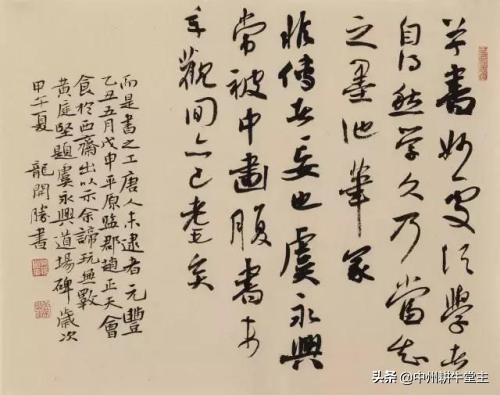 草書妙處須學者
自得然學久乃當知
之墨池筆冢
非傳者妄也虞永興
常被中畫腹書末
年觀間亦已老矣
而是書之工唐人未逮者元豐
乙丑五月戊申平原監郡趙正夫會
食於西齋出以示余諦玩無斁
黃庭堅題虞永興道場碑歲次
甲午夏 龍開勝書
头条 @中州耕牛堂主